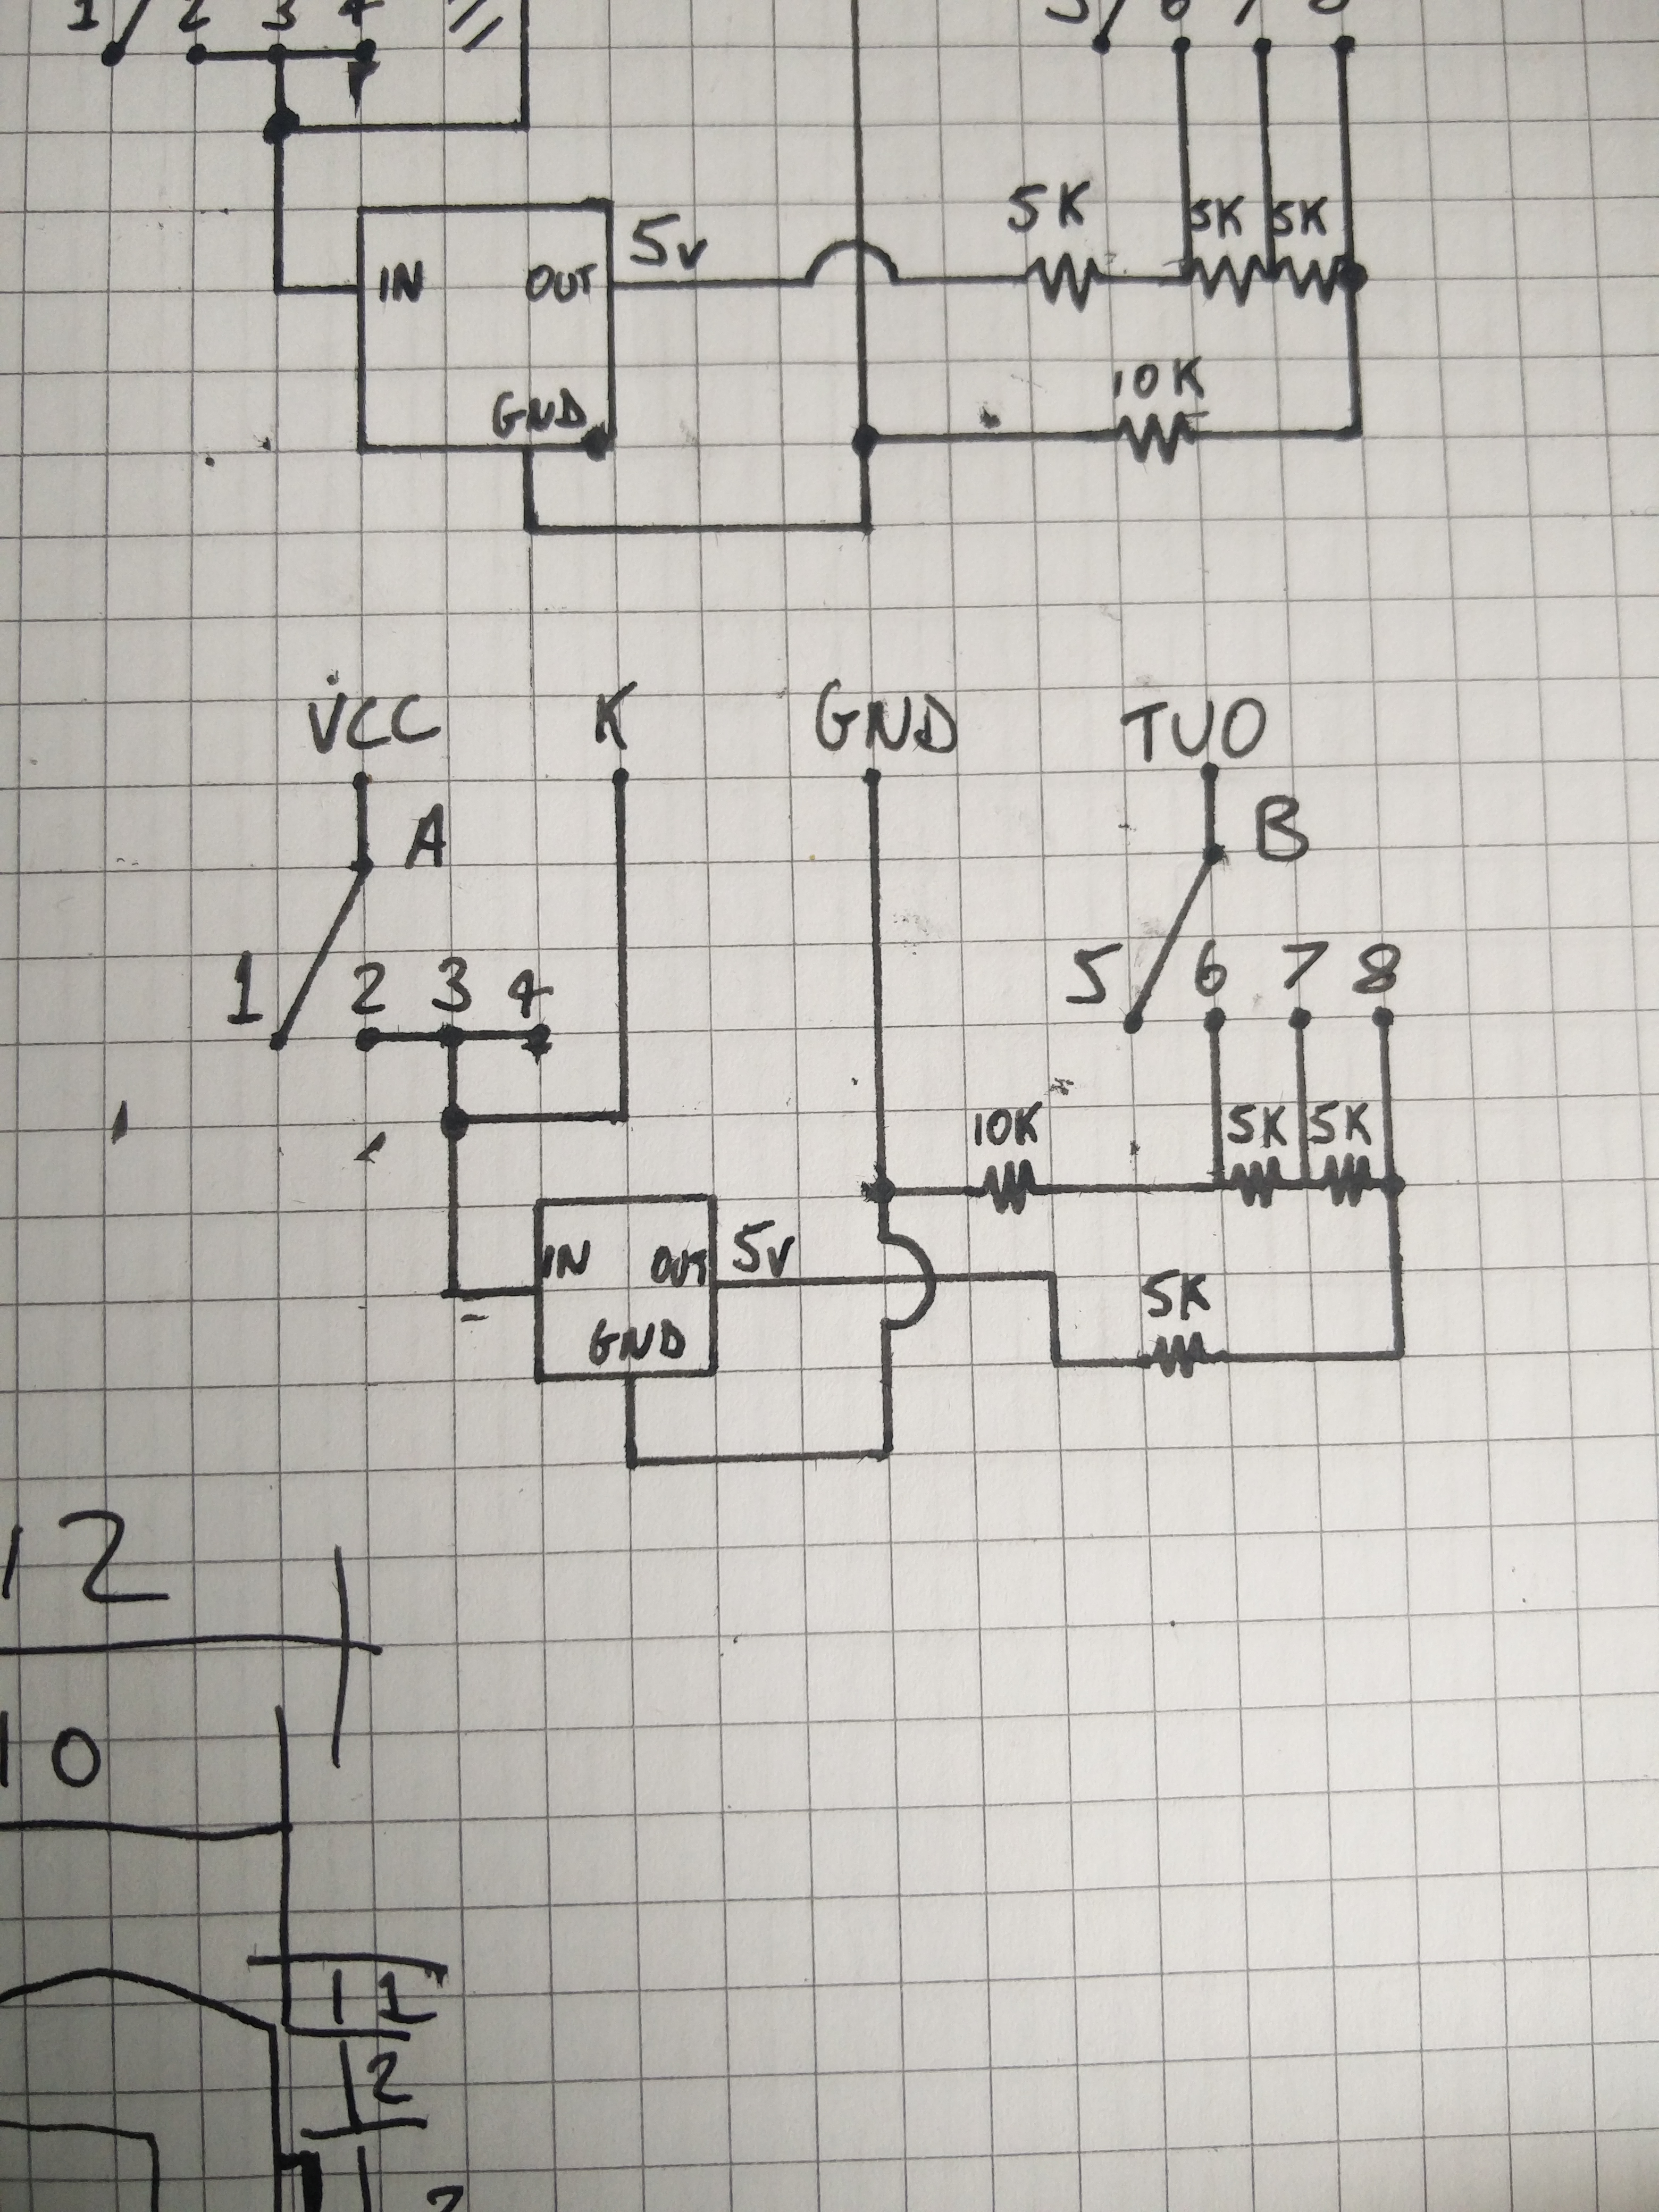 1 2 3 4
5 6 7 8
5K 5K 5K
5v
IN OUT
10K
GND
VCC K GND TUO
A B
1 2 3 4 5 6 7 8
10K 5K 5K
IN OUT 5v
5K
GND
12
10
11
12